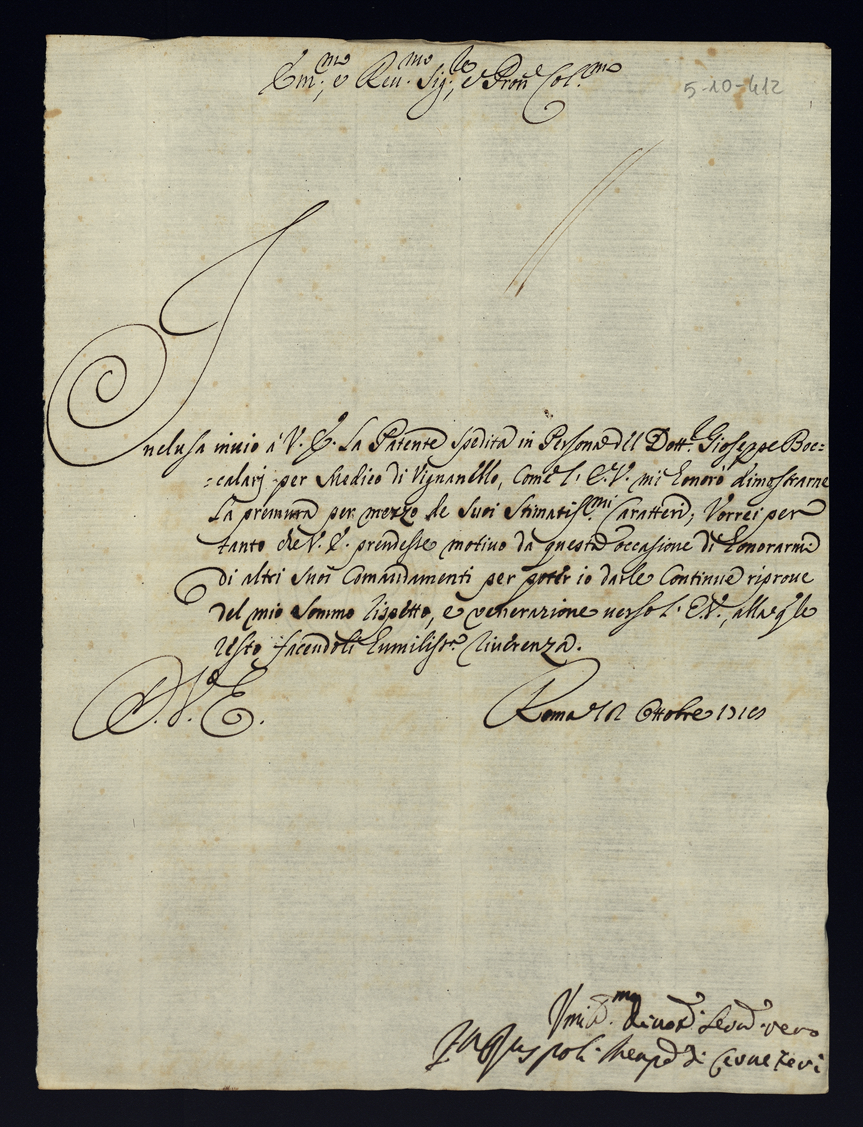 Em:mo, e Reu:mo Sig:re, e Pron̄e Col:mo
5-10-412
Inclusa inuio à V. E. La Patente spedita in Persona del Dott:re Gioseppe Boc=
=calarj per Medico di Vignanello, come l'E.V. mi honorò dimostrarne
la premura per mezzo de suoi stimatiss:mi Caratteri; Vorrei per
tanto che V. E. prendesse motivo da questa occasione di honorarmi
di altri suoi Comandamenti per poter io darle Continue riproue
del mio sommo rispetto, e venerazione verso l'E.V., alla q̃le
resto facendoli humiliss:a riuerenza.
D. V. E.
Roma Ottobre
Vmil:mo Diuot: Seru: vero
Ruspoli Prenpe di Cerueteri